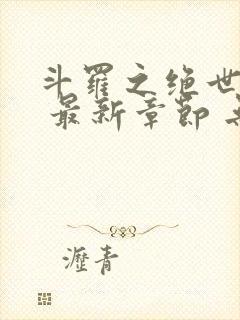 斗羅之絶世
最新章節
瀝青